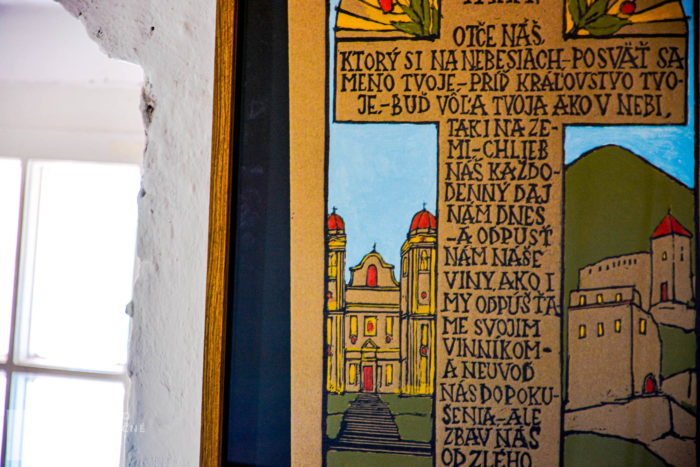 OTČE NÁŠ,
KTORÝ SI NA NEBESIACH–POSVÄŤ SA
MENO TVOJE–PRÍĎ KRÁĽOVSTVO TVO-
JE–BUĎ VÔĽA TVOJA AKO V NEBI,
TAK I NA ZE-
MI–CHLIEB
NÁŠ KAŽDO-
DENNÝ DAJ
NÁM DNES
–A ODPUSŤ
NÁM NAŠE
VINY, AKO I
MY ODPÚŠŤA-
ME SVOJIM
VINNÍKOM–
A NEUVOĎ
NÁS DO POKU-
ŠENIA–ALE
ZBAV NÁS
OD ZLÉHO